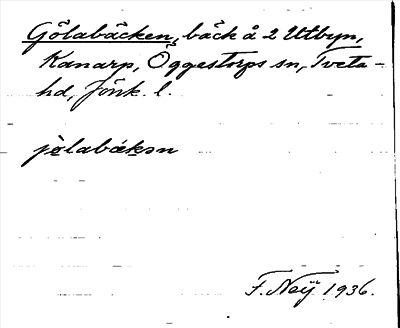 Gölabäcken, bäck å 2 Utbyn,
Kanarp, Öggestorps sn, Tveta-
hd, Jönk. l.
jölabäkən
F. Neÿ 1936.